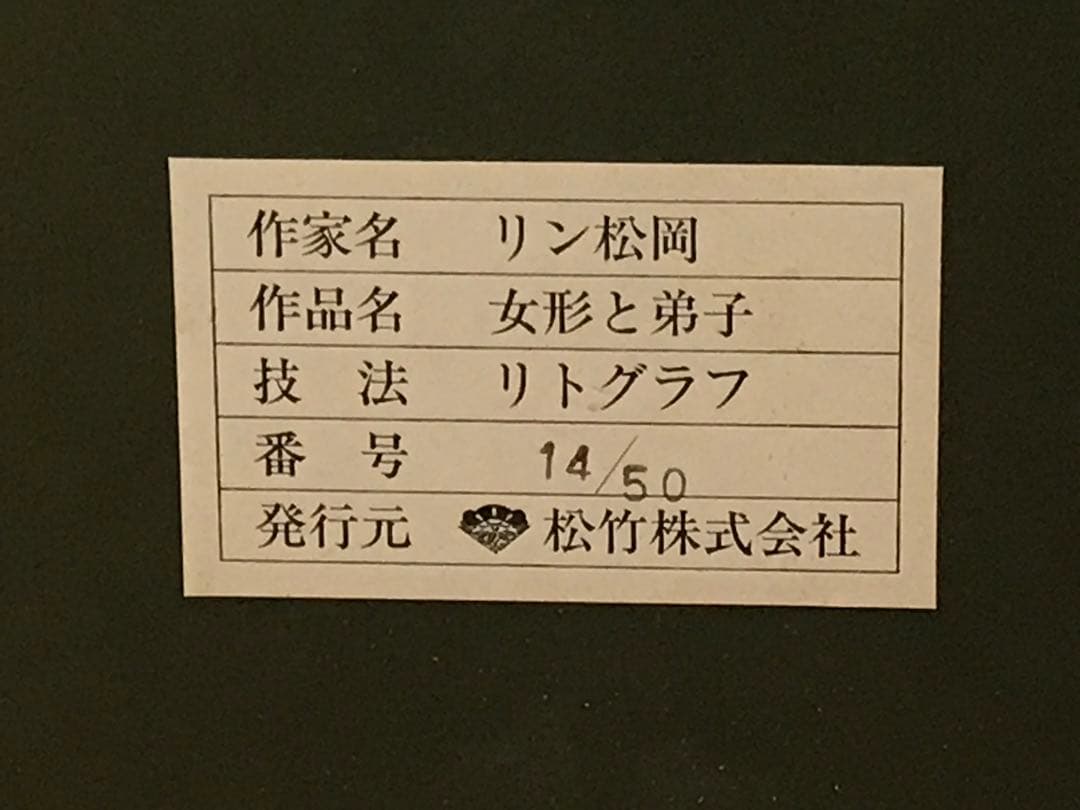 作家名 リン松岡
作品名 女形と弟子
技 法 リトグラフ
番 号 14/50
発行元 松竹株式会社